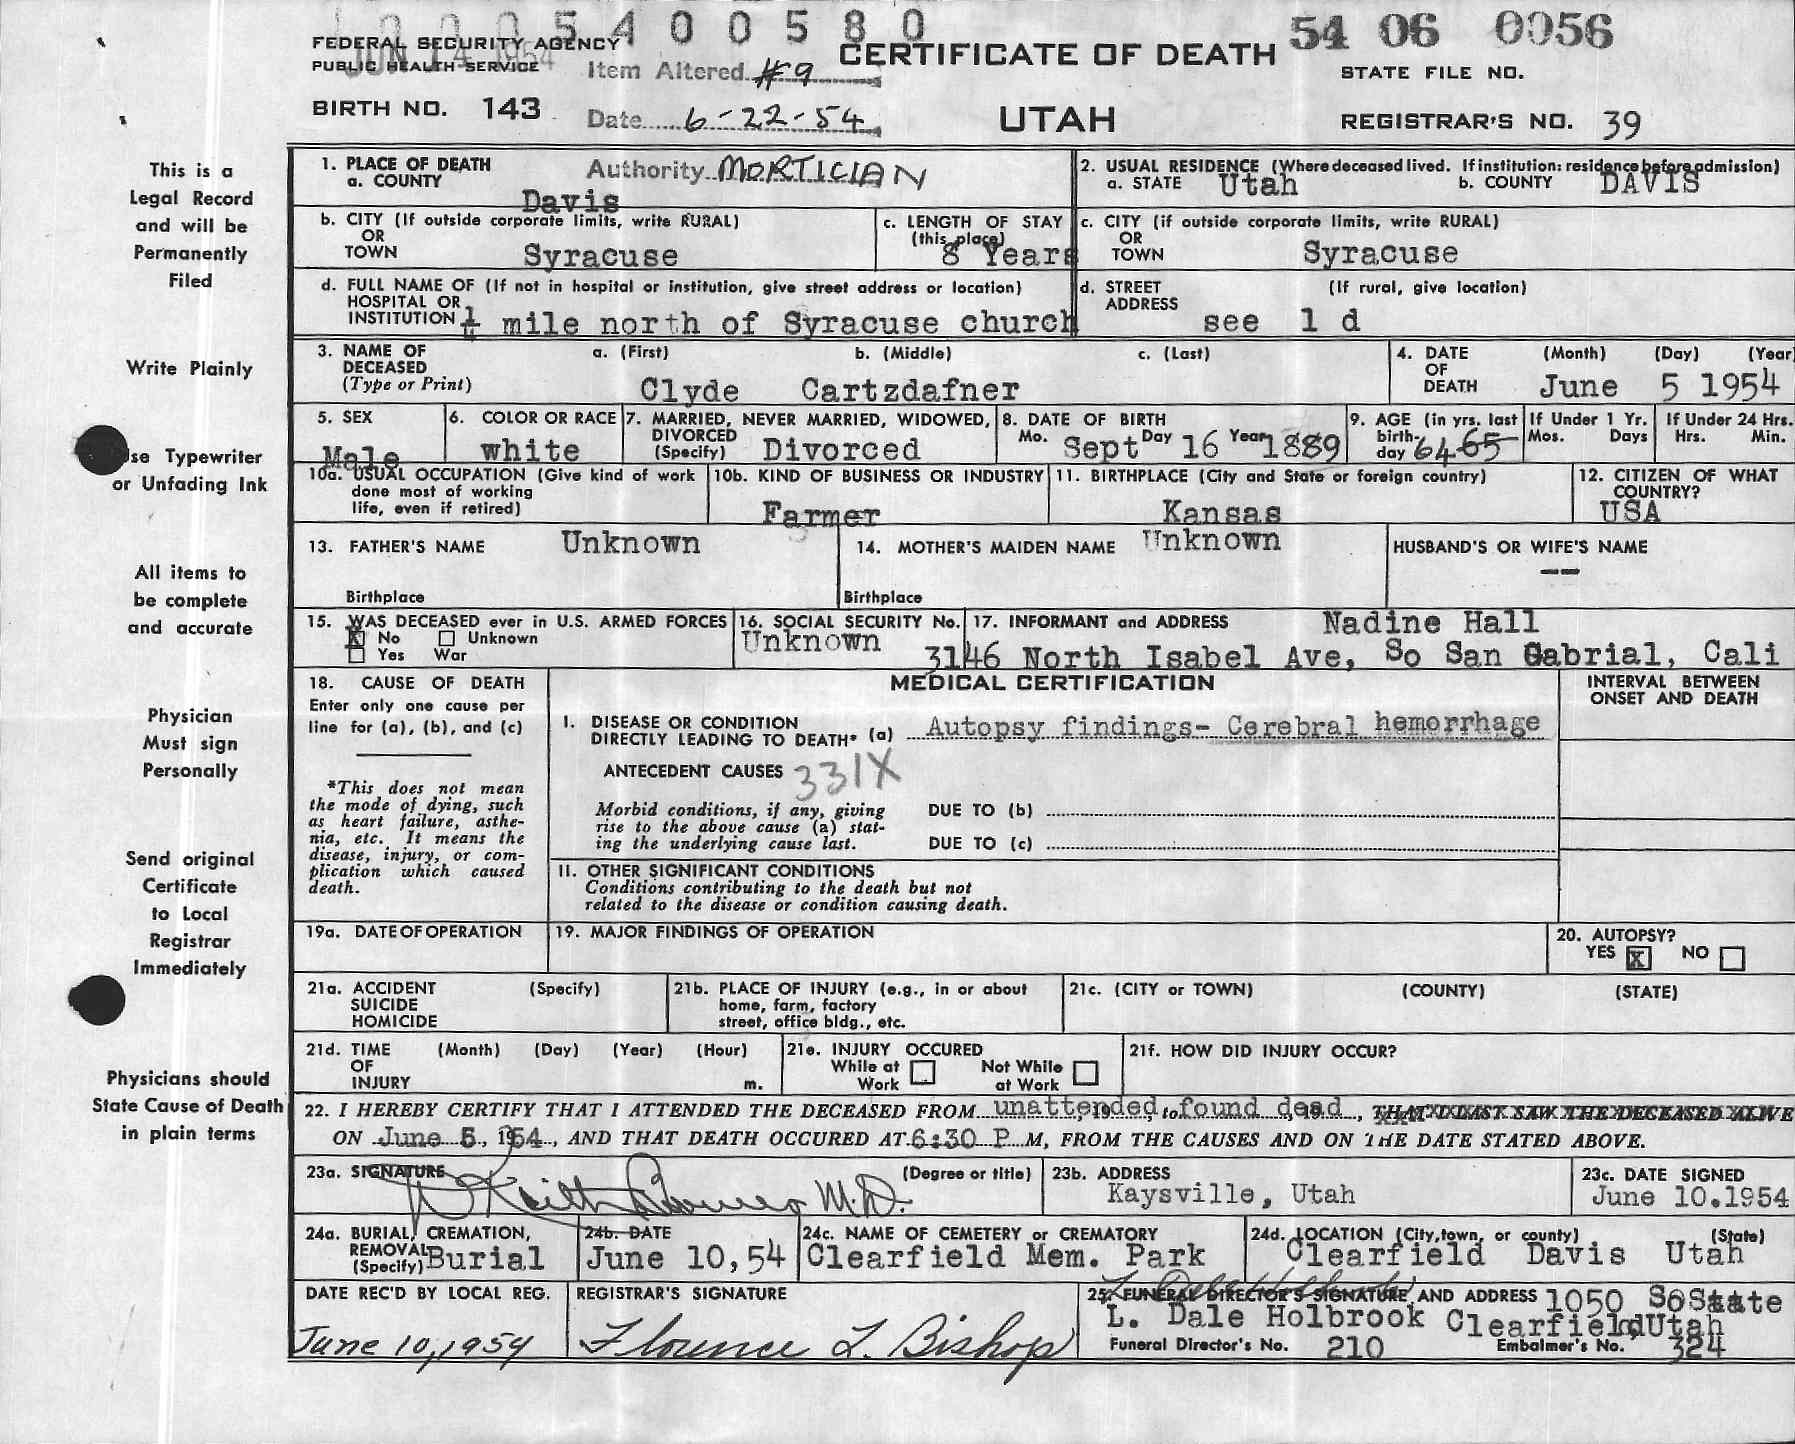 1 0 0 0 5 4 0 0 5 8 0
54 06 0056
FEDERAL SECURITY AGENCY
PUBLIC HEALTH SERVICE
JUN 14 1954
Item Altered #9
CERTIFICATE OF DEATH
STATE FILE NO.
BIRTH NO. 143
Date 6-22-54
UTAH
REGISTRAR'S NO. 39
This is a
Legal Record
and will be
Permanently
Filed
Write Plainly
Use Typewriter
or Unfading Ink
All items to
be complete
and accurate
Physician
Must sign
Personally
Send original
Certificate
to Local
Registrar
Immediately
Physicians should
State Cause of Death
in plain terms
1. PLACE OF DEATH
a. COUNTY
Authority MORTICIAN
Davis
2. USUAL RESIDENCE (Where deceased lived. If institution: residence before admission)
a. STATE Utah b. COUNTY DAVIS
b. CITY (If outside corporate limits, write RURAL)
OR
TOWN Syracuse
c. LENGTH OF STAY
(this place)
8 Years
c. CITY (if outside corporate limits, write RURAL)
OR
TOWN Syracuse
d. FULL NAME OF (If not in hospital or institution, give street address or location)
HOSPITAL OR
INSTITUTION ¼ mile north of Syracuse church
d. STREET (If rural, give location)
ADDRESS see 1 d
3. NAME OF
DECEASED
(Type or Print)
a. (First) b. (Middle) c. (Last)
Clyde Cartzdafner
4. DATE (Month) (Day) (Year)
OF
DEATH June 5 1954
5. SEX
Male
6. COLOR OR RACE
white
7. MARRIED, NEVER MARRIED, WIDOWED,
DIVORCED
(Specify) Divorced
8. DATE OF BIRTH
Mo. Sept Day 16 Year 1889
9. AGE (in yrs. last
birth-
day 64 65
If Under 1 Yr.
Mos. Days
If Under 24 Hrs.
Hrs. Min.
10a. USUAL OCCUPATION (Give kind of work
done most of working
life, even if retired)
10b. KIND OF BUSINESS OR INDUSTRY
Farmer
11. BIRTHPLACE (City and State or foreign country)
Kansas
12. CITIZEN OF WHAT
COUNTRY?
USA
13. FATHER'S NAME Unknown
Birthplace
14. MOTHER'S MAIDEN NAME Unknown
Birthplace
HUSBAND'S OR WIFE'S NAME
--
15. WAS DECEASED ever in U.S. ARMED FORCES
X No Unknown
Yes War
16. SOCIAL SECURITY No.
Unknown
17. INFORMANT and ADDRESS Nadine Hall
3146 North Isabel Ave, So San Gabrial, Cali
18. CAUSE OF DEATH
Enter only one cause per
line for (a), (b), and (c)
*This does not mean
the mode of dying, such
as heart failure, asthe-
nia, etc. It means the
disease, injury, or com-
plication which caused
death.
MEDICAL CERTIFICATION
INTERVAL BETWEEN
ONSET AND DEATH
I. DISEASE OR CONDITION
DIRECTLY LEADING TO DEATH* (a) Autopsy findings- Cerebral hemorrhage
ANTECEDENT CAUSES 331X
Morbid conditions, if any, giving
rise to the above cause (a) stat-
ing the underlying cause last.
DUE TO (b)
DUE TO (c)
II. OTHER SIGNIFICANT CONDITIONS
Conditions contributing to the death but not
related to the disease or condition causing death.
19a. DATE OF OPERATION
19. MAJOR FINDINGS OF OPERATION
20. AUTOPSY?
YES X NO
21a. ACCIDENT (Specify)
SUICIDE
HOMICIDE
21b. PLACE OF INJURY (e.g., in or about
home, farm, factory
street, office bldg., etc.
21c. (CITY or TOWN) (COUNTY) (STATE)
21d. TIME (Month) (Day) (Year) (Hour)
OF
INJURY m.
21e. INJURY OCCURED
While at Work
Not While at Work
21f. HOW DID INJURY OCCUR?
22. I HEREBY CERTIFY THAT I ATTENDED THE DECEASED FROM unattended, 19 to found dead, 19, THAT I LAST SAW THE DECEASED ALIVE
ON June 5, 1954, AND THAT DEATH OCCURED AT 6:30 P M, FROM THE CAUSES AND ON THE DATE STATED ABOVE.
23a. SIGNATURE (Degree or title)
Keith M.D.
23b. ADDRESS
Kaysville, Utah
23c. DATE SIGNED
June 10.1954
24a. BURIAL, CREMATION,
REMOVAL
(Specify) Burial
24b. DATE
June 10,54
24c. NAME OF CEMETERY or CREMATORY
Clearfield Mem. Park
24d. LOCATION (City, town, or county) (State)
Clearfield Davis Utah
DATE REC'D BY LOCAL REG.
June 10, 1954
REGISTRAR'S SIGNATURE
Florence L. Bishop
L Dale Holbrook
25. FUNERAL DIRECTOR'S SIGNATURE AND ADDRESS 1050 So State
L. Dale Holbrook Clearfield, Utah
Funeral Director's No. 210 Embalmer's No. 324